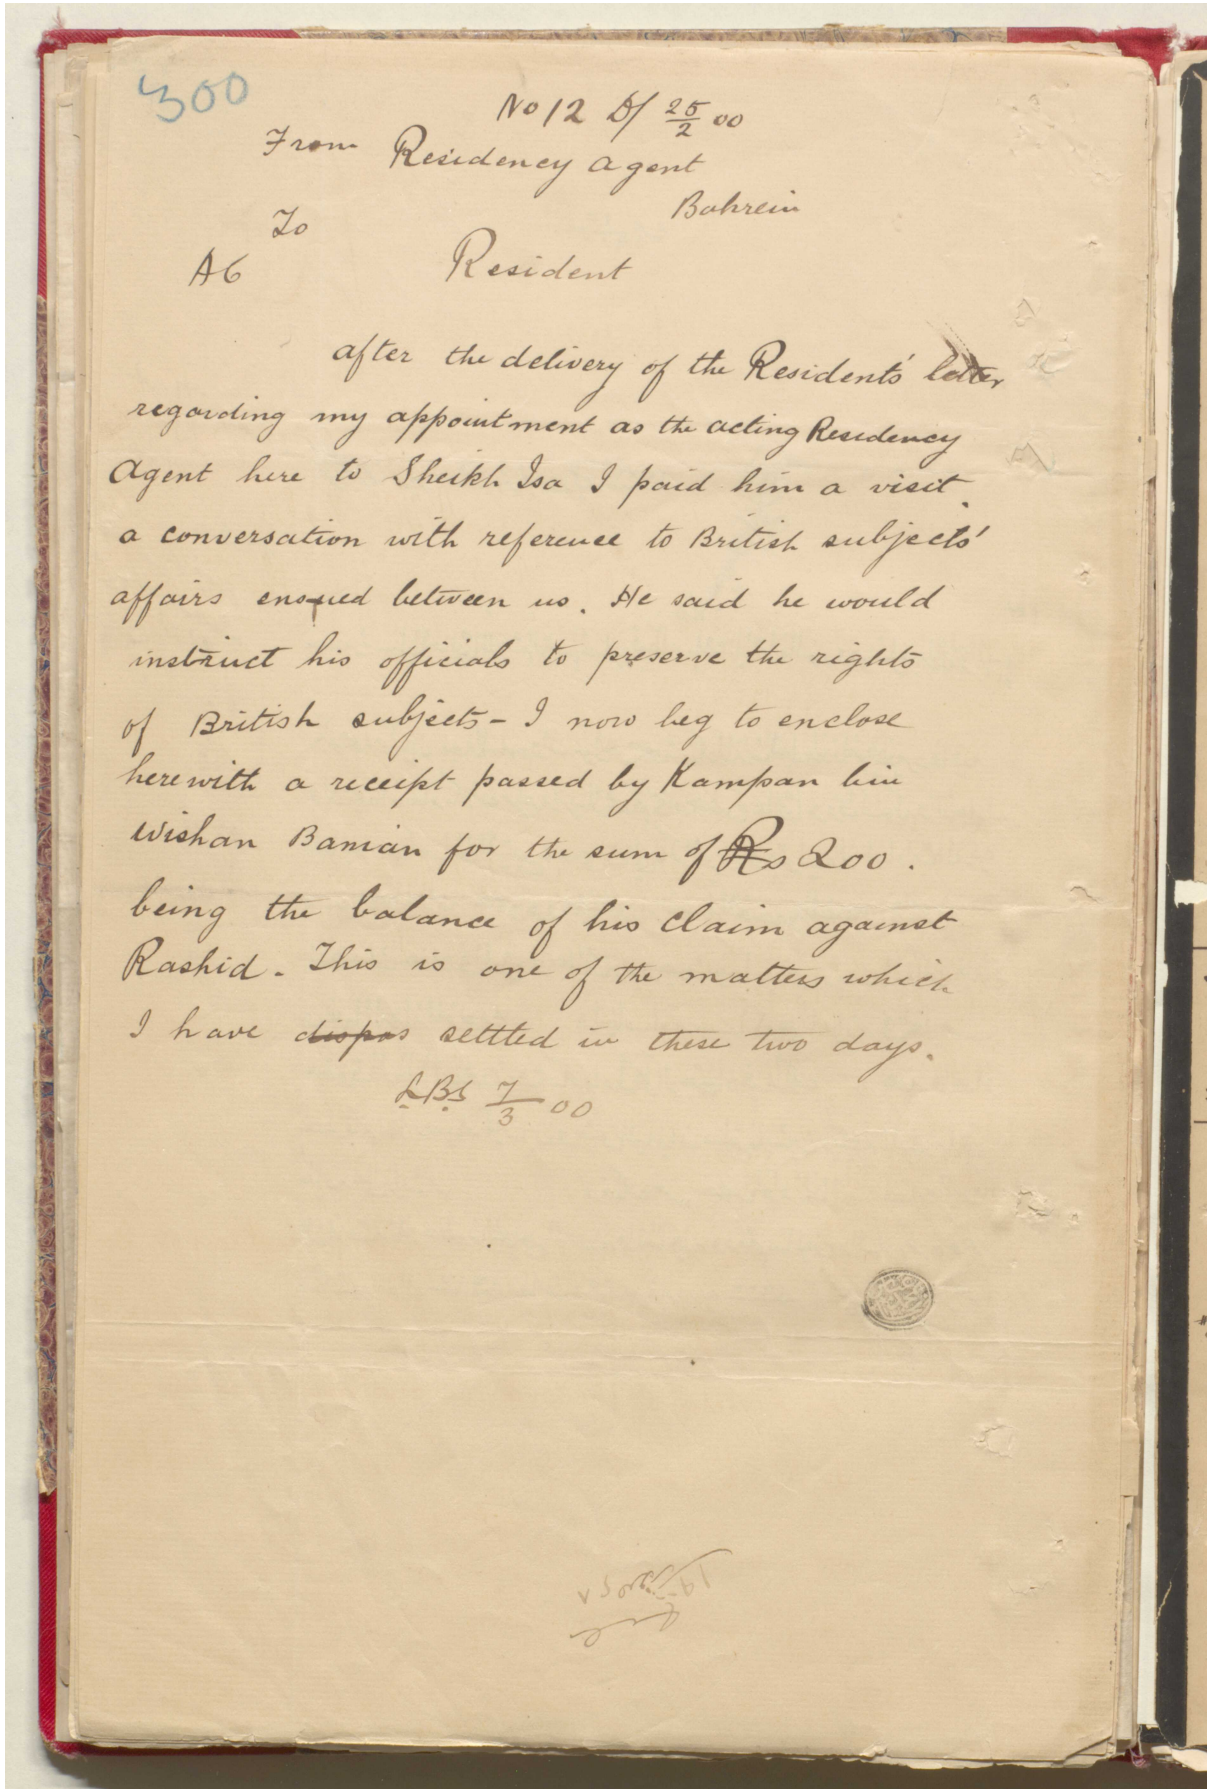 300
No 12 D/ 25/2 00
From Residency Agent
Bahrein
To
A6 Resident
after the delivery of the Residents' letter
regarding my appointment as the acting Residency
Agent here to Sheikh Isa I paid him a visit.
a conversation with reference to British subjects'
affairs ensued between us. He said he would
instruct his officials to preserve the rights
of British subjects - I now beg to enclose
herewith a receipt passed by Kampan bin
Wishan Banian for the sum of Rs 200.
being the balance of his claim against
Rashid. This is one of the matters which
I have dispos settled in these two days.
7/3 00